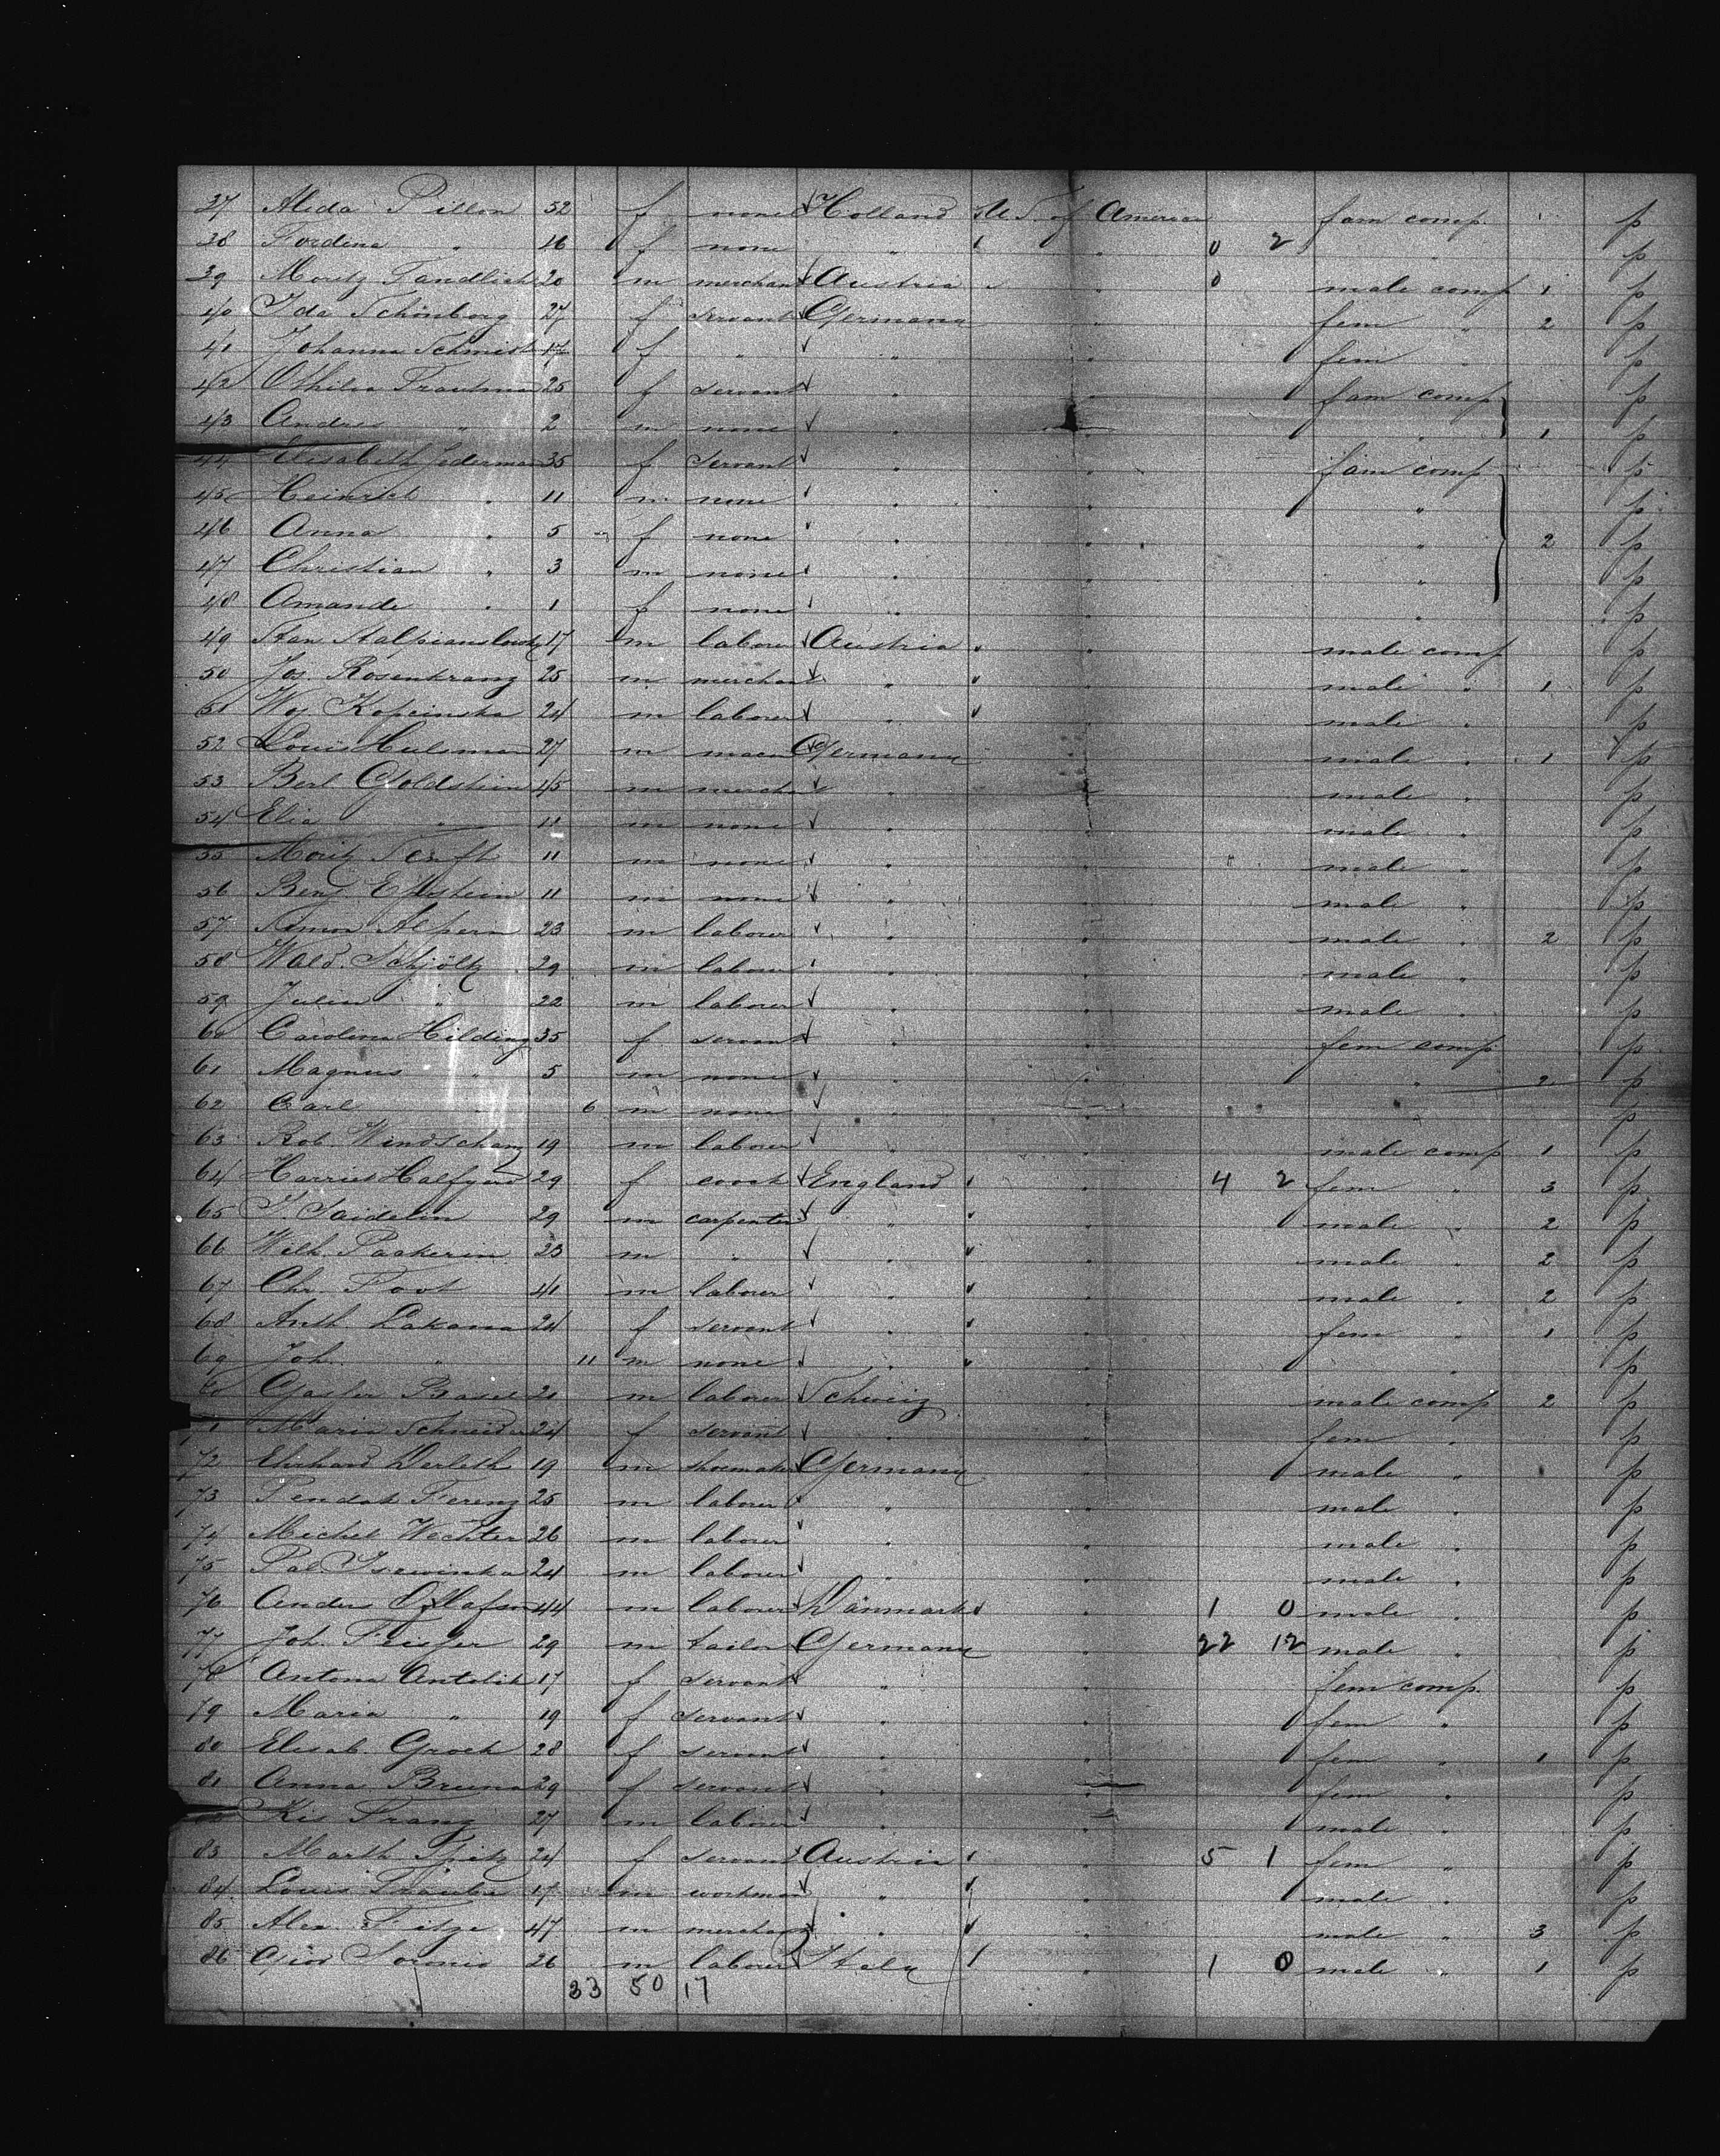 37 Alida Pillon 52 f none Holland U.S. of America fam comp 1 p
38 Fordina " 16 f none " " 0 2 " p
39 Moritz Tandlich 20 m merchant Austria " 0 male comp 1 p
40 Ida Schönborg 27 f servant Germany " fem " 2 p
41 Johanna Schmidt 17 f " " " fem " p
42 Othilia Trautman 25 f servant " " fam comp p
43 Andres " 2 m none " " " 1 p
44 Elisabeth Jederman 35 f servant " " fam comp p
45 Heinrich " 11 m none " " " p
46 Anna " 5 f none " " " 2 p
47 Christian " 3 m none " " " p
48 Amande " 1 f none " " " p
49 Stan 17 m laborer Austria " male comp p
50 Jos. Rosenkranz 25 m merchant " " male " 1 p
51 Woj Kopcinska 24 m laborer " " male " p
52 Louis Hulsman 27 m Germany male " 1 p
53 Berl Goldstein 45 m mercha " " male " p
54 Elia " 11 m none " " male " p
55 Moritz 11 m none " " " male " p
56 Benj. Eppstein 11 m none " " male " p
57 Simon Alpern 23 m laborer " " male " 2 p
58 Wald. 29 m laborer " " male " p
59 Julius " 22 m laborer " " male " p
60 Carolina Hilding 35 f servant " " fem comp p
61 Magnus " 5 m none " " " 2 p
62 Carl " 6 m none " " " p
63 Rob. 19 m laborer " " male comp 1 p
64 Harriet 29 f cook England " 4 2 fem " 3 p
65 J Saidelin 29 m carpenter " " male " 2 p
66 Wilh. 23 m " " " male " 2 p
67 Chr. Foot 41 m laborer " " male " 2 p
68 Anth. Lakama 24 f servant " " fem " 1 p
69 Joh. " 11 m none " " " p
Basel 20 m laborer Schweiz " male comp 2 p
Maria Schneider 24 f servant " " fem " p
72 Ehrhard Derleth 19 m shoemaker Germany " male " p
73 Ferenz 25 m laborer " " male " p
74 Michel Wachter 26 m laborer " " male " p
75 Pal 24 m laborer " " male " p
76 Anders Olafson 44 m laborer Dänmark " 1 0 male " p
77 Joh. 29 m tailor Germany " 22 12 male " p
78 Antona Antolik 17 f servant " " fem comp. p
79 Maria " 19 f servant " " fem " p
80 Elisab. Groch 28 f servant " " fem " 1 p
81 Anna Bruna 29 f servant " " fem " p
Kis Franz 27 m laborer " " male " p
83 Marth 24 f servant Austria " 5 1 fem " p
84 Louis 17 m workman " " male " p
85 Alex. 47 m merchant " " male " 3 p
86 26 m laborer Italy " 1 0 male " 1 p
33 50 17